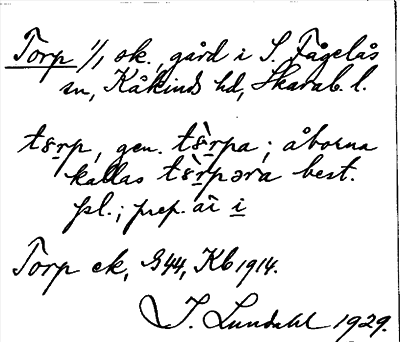 Torp 1/1, sk., gård i S. Fågelås
sn, Kåkinds hd, Skarab. l.
tɛrp, gen. tɛ̀rpa; åborna
kallas tɛ̀rpəra best.
pl.; prep. är i
Torp ek, G44, Kb 1914.
I. Lundahl 1929.